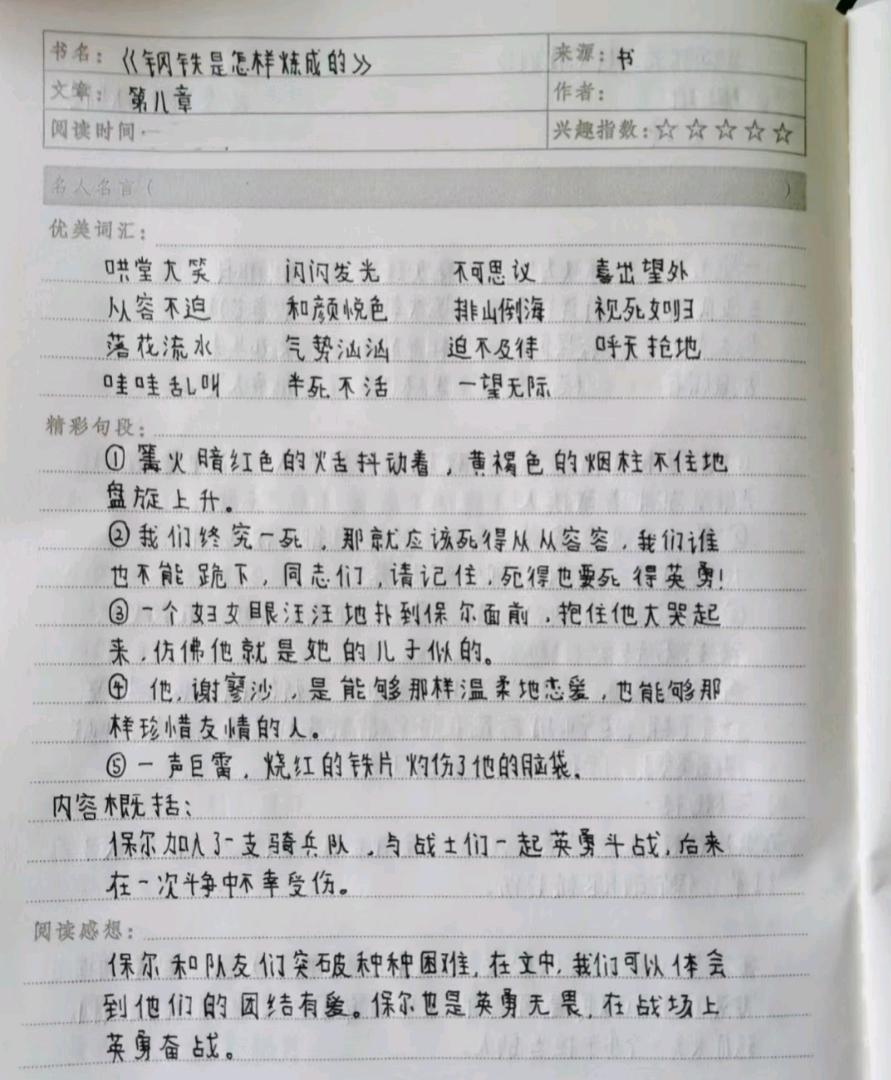 书名：《钢铁是怎样炼成的》 来源：书
文章：第八章 作者：
阅读时间 兴趣指数：☆☆☆☆☆
名人名言（ ）
优美词汇：
哄堂大笑 闪闪发光 不可思议 喜出望外
从容不迫 和颜悦色 排山倒海 视死如归
落花流水 气势汹汹 迫不及待 呼天抢地
哇哇乱叫 半死不活 一望无际
精彩句段：
①篝火暗红色的火舌抖动着，黄褐色的烟柱不住地
盘旋上升。
②我们终究一死，那就应该死得从从容容，我们谁
也不能跪下，同志们，请记住，死得也要死得英勇！
③一个妇女眼汪汪地扑到保尔面前，抱住他大哭起
来，仿佛他就是她的儿子似的。
④他，谢寥沙，是能够那样温柔地恋爱，也能够那
样珍惜友情的人。
⑤一声巨雷，烧红的铁片灼伤了他的脑袋。
内容概括：
保尔加入了一支骑兵队，与战士们一起英勇斗战，后来
在一次斗争中不幸受伤。
阅读感想：
保尔和队友们突破种种困难，在文中，我们可以体会
到他们的团结有爱。保尔也是英勇无畏，在战场上
英勇奋战。